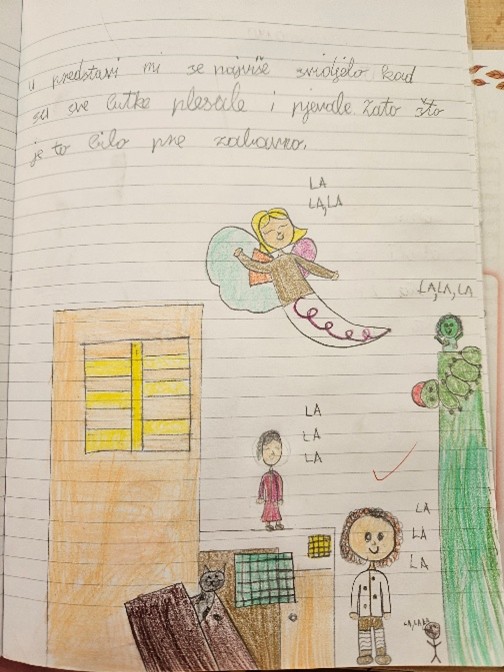 u predstavi mi se najviše svidjelo kad
su sve lutke plesale i pjevale. Zato što
je to bilo pre zabavno.
LA
LA,LA
LA,LA,LA
LA
LA
LA
LA
LA
LA
LA,LA,LA